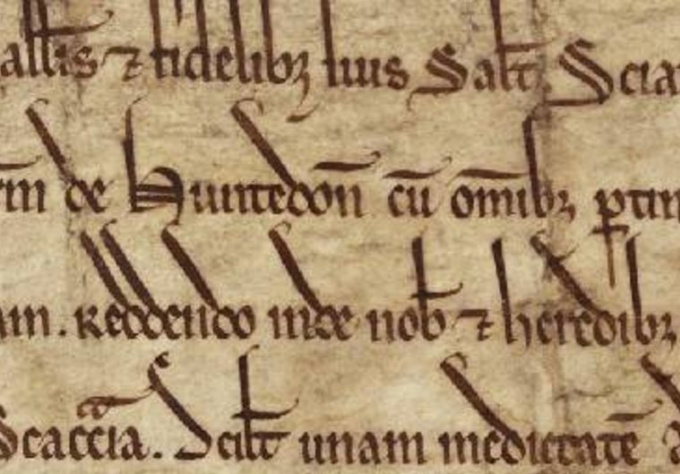 allis ⁊ fidelibꝫ suis Salt̄. Scia
m de Huntedoñ cū om̄ibꝫ ꝑtin
am. Reddendo inde nob̄ ⁊ heredibꝫ
Scaccia. Scilt unam medietatē